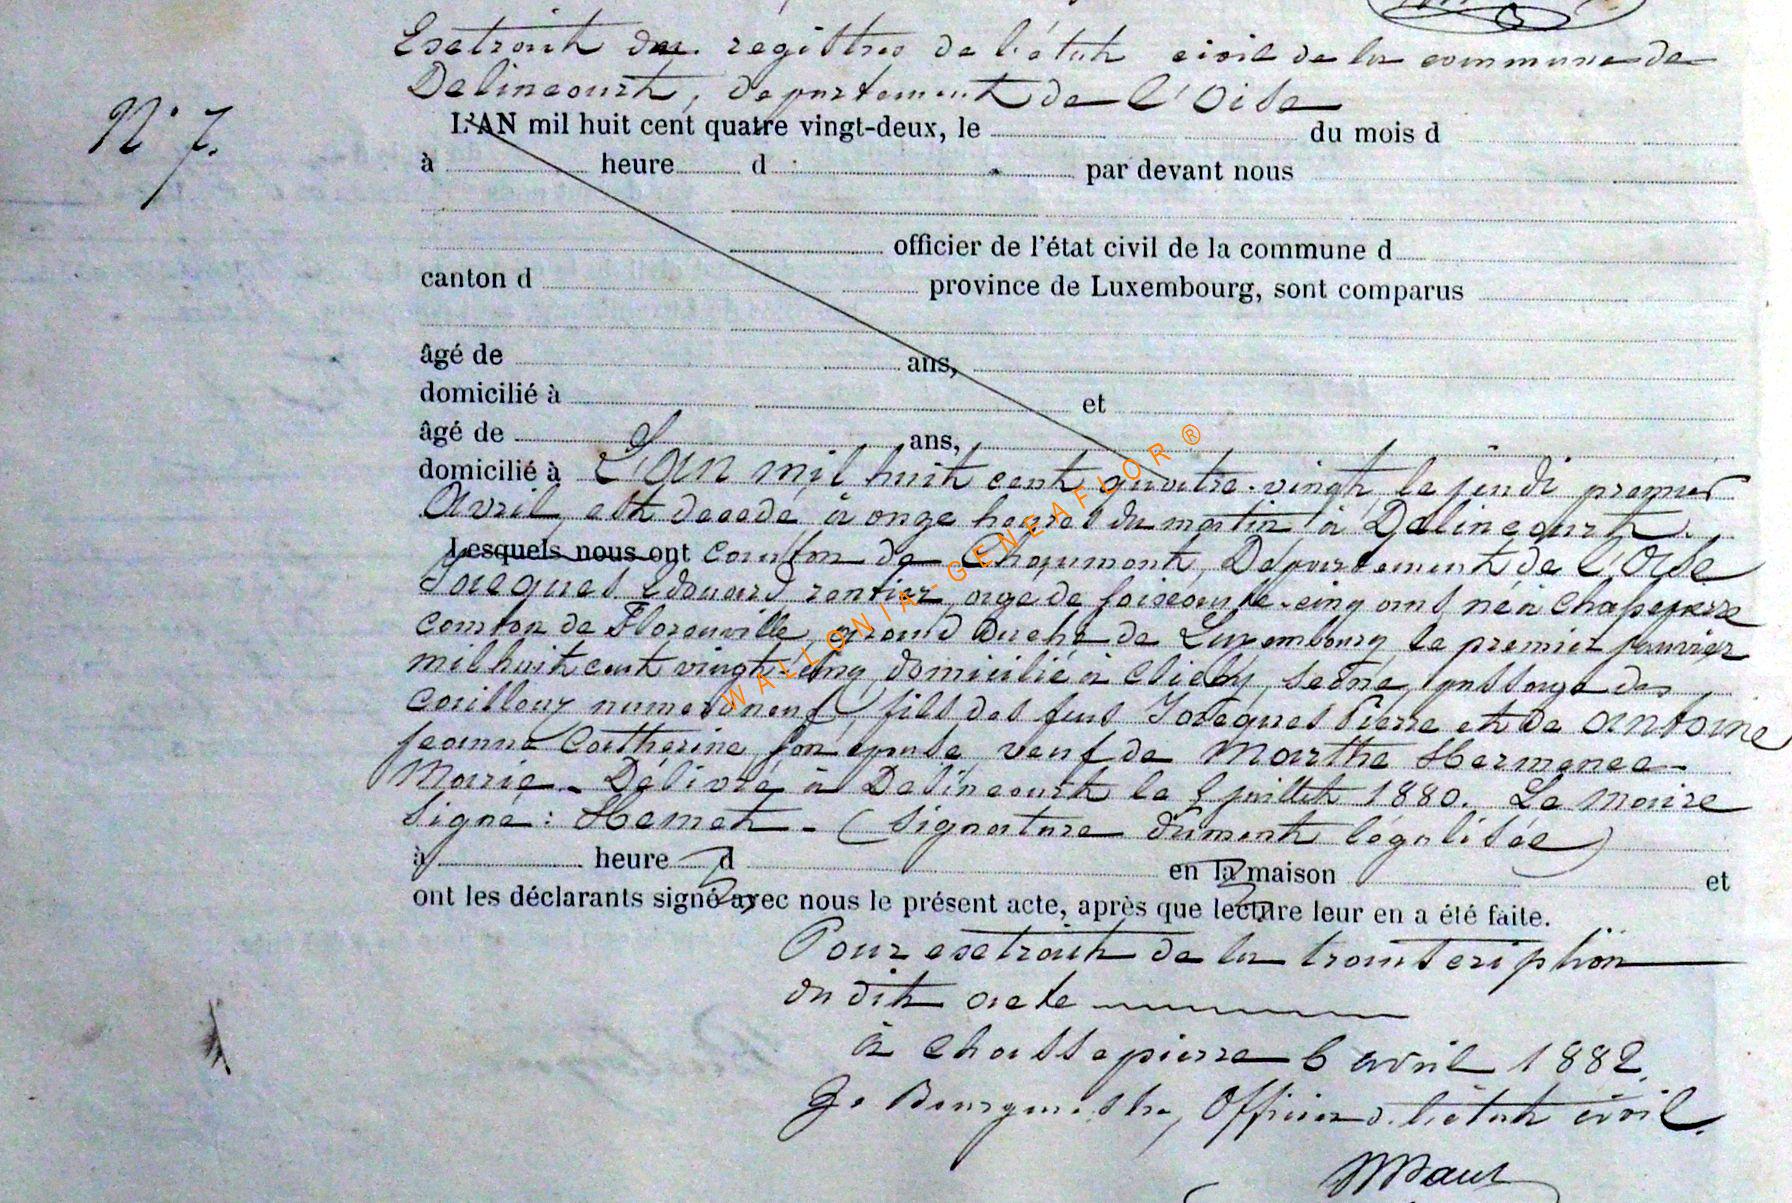 Esctrait des registres de l'état civil de la commune de
Delincourt, département de l'Oise
N° 7.
L'AN mil huit cent quatre vingt-deux, le du mois d
à heure d par devant nous
officier de l'état civil de la commune d
canton d province de Luxembourg, sont comparus
âgé de ans,
domicilié à et
âgé de ans,
domicilié à L'an mil huit cent quatre-vingt, le jeudi premier
avril, est décédé à onze heures du matin à Delincourt.
Lesquels nous ont canton de Chaumont, Département de l'Oise
Jacques Edouard rentier, agé de soiscante-cinq ans né à Chasepierre
canton de Florenville, grand Duché de Luxembourg le premier janvier
mil huit cent vingt-cinq, domicilié à Clichy, Seine, passage des
Cailloux numero neuf, fils des feus Jacques Pierre et de Antoine
Jeanne Catherine son épouse veuf de Marthe Hermance
Marie - Délivré à Delincourt le juillet 1880. Le Maire
Signé: Hemet - (Signature dûment légalisée)
à heure d en la maison et
ont les déclarants signé avec nous le présent acte, après que lecture leur en a été faite.
Pour esctrait de la transcription
du dit acte
à Chassepierre 6 avril 1882.
Le Bourgmestre, Officier d. l'état civil.
WALLONIA-GENEAFLOR ®